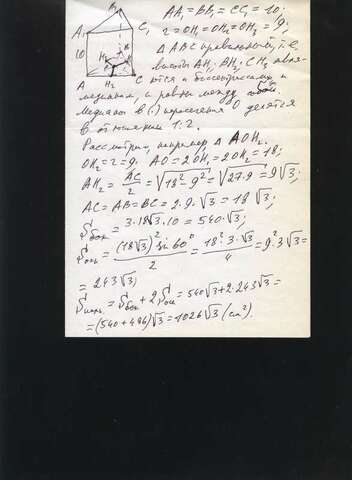 B₁
A₁
C₁
10
A
B
C
H₂
AA₁ = BB₁ = CC₁ = 10;
r = OH₁ = OH₂ = OH₃ = 9;
△ABC правильный, т.е.
высоты AH₁, BH₂, CH₃ явля-
ются и биссектрисами, и
медианами, и равны между собой.
Медианы в (·) пересечения O делятся
в отношении 1:2.
Рассмотрим, например △ AOH₂.
OH₂ = r = 9; AO = 2OH₁ = 2OH₂ = 18;
AH₂ = AC/2 = √18² - 9² = √27·9 = 9√3;
AC = AB = BC = 2·9·√3 = 18√3;
Sбок = 3·18√3·10 = 540√3;
Sосн = (18√3)² sin 60°/2 = 18²·3·√3/4 = 9²·3√3 =
= 243√3
Sполн = Sбок + 2Sосн = 540√3 + 2·243√3 =
= (540 + 486)√3 = 1026√3 (см²).